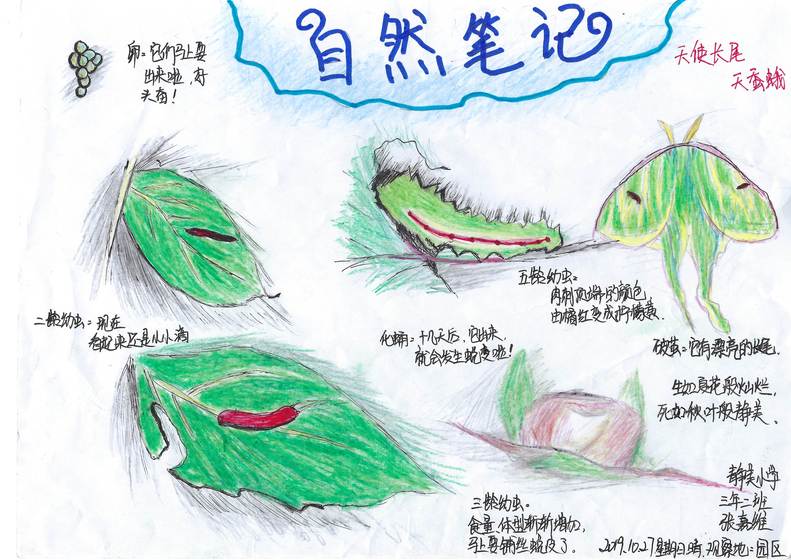 自然笔记
天使长尾
天蚕蛾
卵:它们马上要
出来啦,好
兴奋!
二龄幼虫:现在
看起来还是小小滴
五龄幼虫:
肉刺顶端的颜色
由橘红变成柠檬黄.
化蛹:十几天后,它出来,
就会发生蜕变啦!
破茧:它有漂亮的长尾.
生如夏花般灿烂,
死如秋叶般静美.
三龄幼虫.
食量、体型渐渐增加,
马上要
蜕皮了.
三年二班
2019.10.27 星期日 晴. 观察地:园区